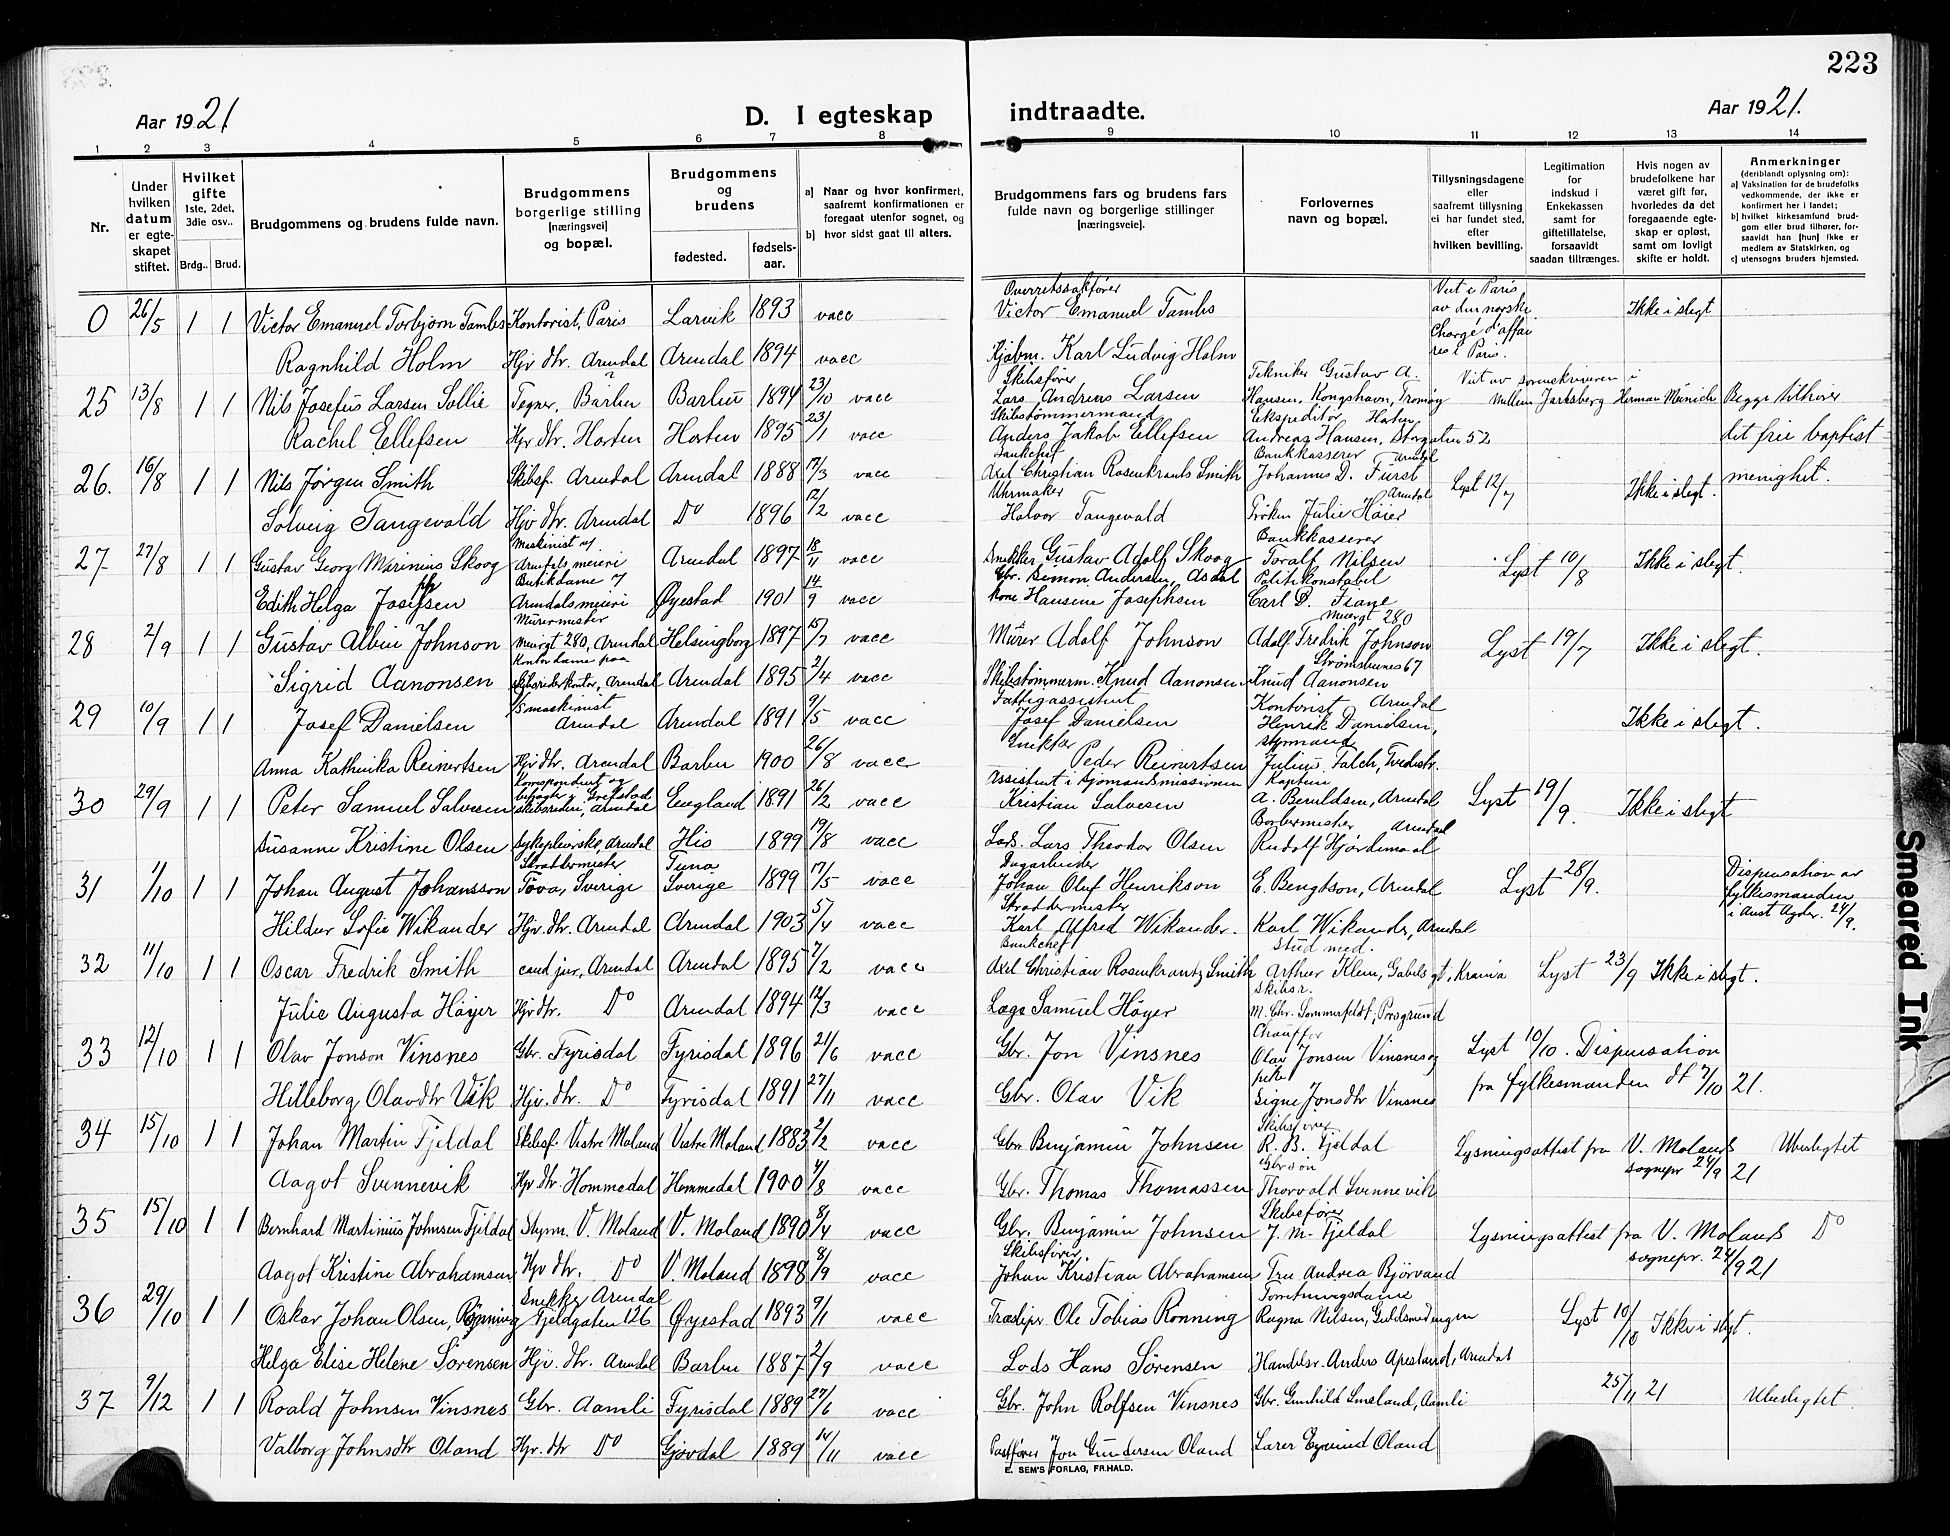 223
Aar 1921.
D. I egteskap indtraadte.
Aar 1921.
1 2 3 4 5 6 7 8 9 10 11 12 13 14
Nr.
Under hvilken datum er egteskapet stiftet.
Hvilket gifte 1ste, 2det, 3die osv..
Brdg.. Brud.
Brudgommens og brudens fulde navn.
Brudgommens borgerlige stilling (næringsvei) og bopæl.
Brudgommens og brudens
fødested.
fødselsaar.
a) Naar og hvor konfirmert, saafremt konfirmationen er foregaat utenfor sognet, og
b) hvor sidst gaat til alters.
Brudgommens fars og brudens fars fulde navn og borgerlige stillinger (næringsveie).
Forlovernes navn og bopæl.
Tillysningsdagene eller saafremt tillysning ei har fundet sted, efter hvilken bevilling.
Legitimation for indskud i Enkekassen samt for giftetillatelse, forsaavidt saadan tiltrænges.
Hvis nogen av brudefolkene har været gift før, hvorledes da det foregaaende egteskap er opløst, samt om lovligt skifte er holdt.
Anmerkninger (deriblandt oplysning om):
a) Vaksination for de brudefolks vedkommende, der ikke er konfirmert her i landet;
b) hvilket kirkesamfund brudgom eller brud tilhører, forsaavidt han (hun) ikke er medlem av Statskirken, og
c) utensogns bruders hjemsted.
0 26/5 1 1 Victor Emanuel Torbjørn Tambs Kontorist, Paris Larvik 1893 vacc Overretssakfører Victor Emanuel Tambs Viet i Paris av den norske Chargé d'affaires i Paris. Ikke i slegt
Ragnhild Holm Hjv dtr. Arendal Arendal 1894 vacc Kjøbm. Karl Ludvig Holm
25 13/8 1 1 Nils Josefus Larsen Sollie Tegner, Barbu Barbu 1894 23/10 vacc Skibsfører Lars Andreas Larsen Tekniker Gustav A. Hansen, Kongshavn, Tromøy Viet av sorenskriveren i Mellem Jarlsberg Herman Münich Begge tilhører
Rachel Ellefsen Hjv dtr. Horten Horten 1895 23/1 vacc Skibstømmermand Anders Jakob Ellefsen Ekspeditør Horten Andreas Hansen, Storgaten 52 det frie baptist menighet.
26. 16/8 1 1 Nils Jørgen Smith Skibsf. Arendal Arendal 1888 17/3 vacc Bankchef Axel Christian Rosenkrants Smith Bankkasserer Arendal Johannes D. Fürst Lyst 12/7 Ikke i slegt.
Solveig Tangevald Hjv dtr. Arendal Do 1896 12/2 vacc Uhrmaker Halvor Tangevald Arendal Frøken Julie Høier
27 27/8 1 1 Gustav Georg Marinius Skoog Maskinist v/ Arendals meieri Arendal 1897 18/11 vacc Snekker Gustav Adolf Skoog Bankkasserer Toralf Nilsen Lyst 10/8 Ikke i slegt.
Edith Helga Josefsen ph Butikdame v/ Arendals meieri Øyestad 1901 14/9 vacc Gbr. Bemon Andersen, Asdal Kone Hansine Josephsen Politikonstabel Carl D. Fiane
28 2/9 1 1 Gustav Albin Johnson Murermester Muergt 280, Arendal Helsingborg 1897 15/7 vacc Murer Adolf Johnson Muergt 280 Adolf Fredrik Johnson Lyst 19/7 Ikke i slegt.
Sigrid Aanonsen Kontordame paa skibsrederkontor, Arendal Arendal 1895 2/4 vacc Skibstømmerm. Knud Aanonsen Strømsbunes 67 Knud Aanonsen
29 10/9 1 1 Josef Danielsen Smaskinist Arendal Arendal 1891 9/5 vacc Fattigassistent Josef Danielsen Kontorist Arendal Henrik Danielsen, Ikke i slegt.
Anna Kathinka Reinertsen Hjv dtr. Arendal Barbu 1900 26/8 vacc Snekker Peder Reinertsen styrmand Julius Falch, Tvedestr.
30 29/9 1 1 Peter Samuel Salvesen Korrespondent og skibsrederi, Arendal England 1891 26/2 vacc Assistent i Sjømandsmissionen Kristian Salvesen Kaptein A. Beruldsen, Arendal Lyst 19/9. Ikke i slegt
Susanne Kristine Olsen Sykepleierske, Arendal His 1899 19/8 vacc Lods. Lars Theodor Olsen Borbermester Arendal Rudolf Hjørdemaal
31 1/10 1 1 Johan August Johansson Skræddermester Töva, Sverige Tuna Sverige 1899 17/5 vacc Dagarbeider Johan Oluf Henrikson E. Bengtson, Arendal Lyst 28/9. Dispensation av fylkesmanden i Aust Agder. 24/9.
Hildur Sofie Wikander Hjv. dtr. Arendal Arendal 1903 57/4 vacc Skræddermester Karl Alfred Wikander. Karl Wikander, Arendal
32 11/10 1 1 Oscar Fredrik Smith cand jur, Arendal Arendal 1895 7/2 vacc Bankchef Axel Christian Rosenkrantz Smith stud med. Arthur Klem, Gabelsgt, Krania Lyst 23/9 Ikke i slegt.
Julie Augusta Høyer Hjv dtr. Do Arendal 1894 12/3 vacc Læge Samuel Høyer skibsr. M. Chr. Sommerfeldt, Porsgrund
33 12/10 1 1 Olav Jonson Vinsnes Gbr. Fyrisdal Fyrisdal 1896 21/6 vacc Gbr. Jon Vinsnes Chauffør Olav Jonsen Vinsnes og Lyst 10/10. Dispensation
Hilleborg Olavdtr Vik Hjv. dtr. Do Fyrisdal 1891 27/11 vacc Gbr. Olav Vik pike Signe Jonsdtr Vinsnes fra fylkesmanden dt 7/10 21.
34 15/10 1 1 Johan Martin Fjeldal Skibsf. Vestre Moland Vestre Moland 1883 2/2 vacc Gbr. Benjamin Johnsen Skibsfører R. B. Fjeldal Lysningsattest fra V. Molands sognepr 24/9 21 Ubeslegtet
Aagot Svennevik Hjv dtr. Hommedal Hommedal 1900 4/8 vacc Gbr. Thomas Thomassen Gbrsøn Thorvald Svennevik
35 15/10 1 1 Bernhard Martinius Johnsen Fjeldal Styrm. V. Moland V. Moland 1890 8/4 vacc Gbr. Benjamin Johnsen Skibsfører J. M. Fjeldal Lysningsattest fra V. Molands sognepr. 24/9 21 Do
Aagot Kristine Abrahamsen Hjv dtr. Do V. Moland 1898 8/9 vacc Skibsfører. Johan Kristian Abrahamsen Fru Andrea Bjørvand
36 29/10 1 1 Oskar Johan Olsen, Rønning Snekker Arendal Fjeldgaten 126 Øyestad 1893 9/1 vacc Træsliper Ole Tobias Rønning Forretningsdame Ragna Nilsen, Guldsmedengen Lyst 10/10 Ikke i slegt.
Helga Elise Helene Sørensen Hjv. dtr. Arendal Barbu 1887 2/9 vacc Lods Hans Sørensen Handelsr. Anders Apesland, Arendal
37 9/12 1 1 Roald Johnsen Vinsnes Gbr. Aamli Fyrisdal 1889 27/6 vacc Gbr. John Rolfsen Vinsnes Gbr. Gunhild Smeland, Aamli 25/11 21 Ubeslegtet.
Valborg Johnsdtr Oland Hjv. dtr Do Gjøvdal 1889 14/11 vacc Postfører Jon Gundersen Oland Lærer Eyvind Oland
E. SEM'S FORLAG, FR.HALD.
Smeared Ink